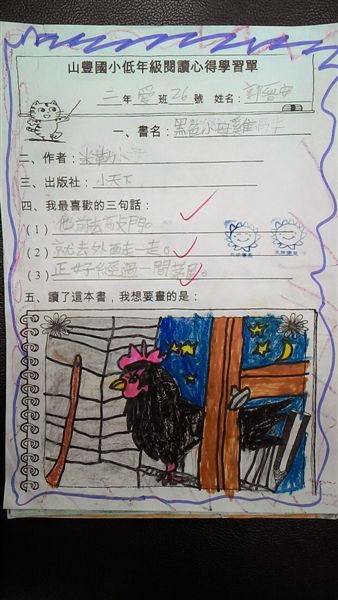 山豐國小低年級閱讀心得學習單
二年 愛 班 26 號 姓名：
一、書名：黑益小母雞
二、作者：
三、出版社：小天下
四、我最喜歡的三句話：
(1) 他前去敲門。
(2) 就去外面走一走。
(3) 正好經過一間菜園。
五、讀了這本書，我想要畫的是：